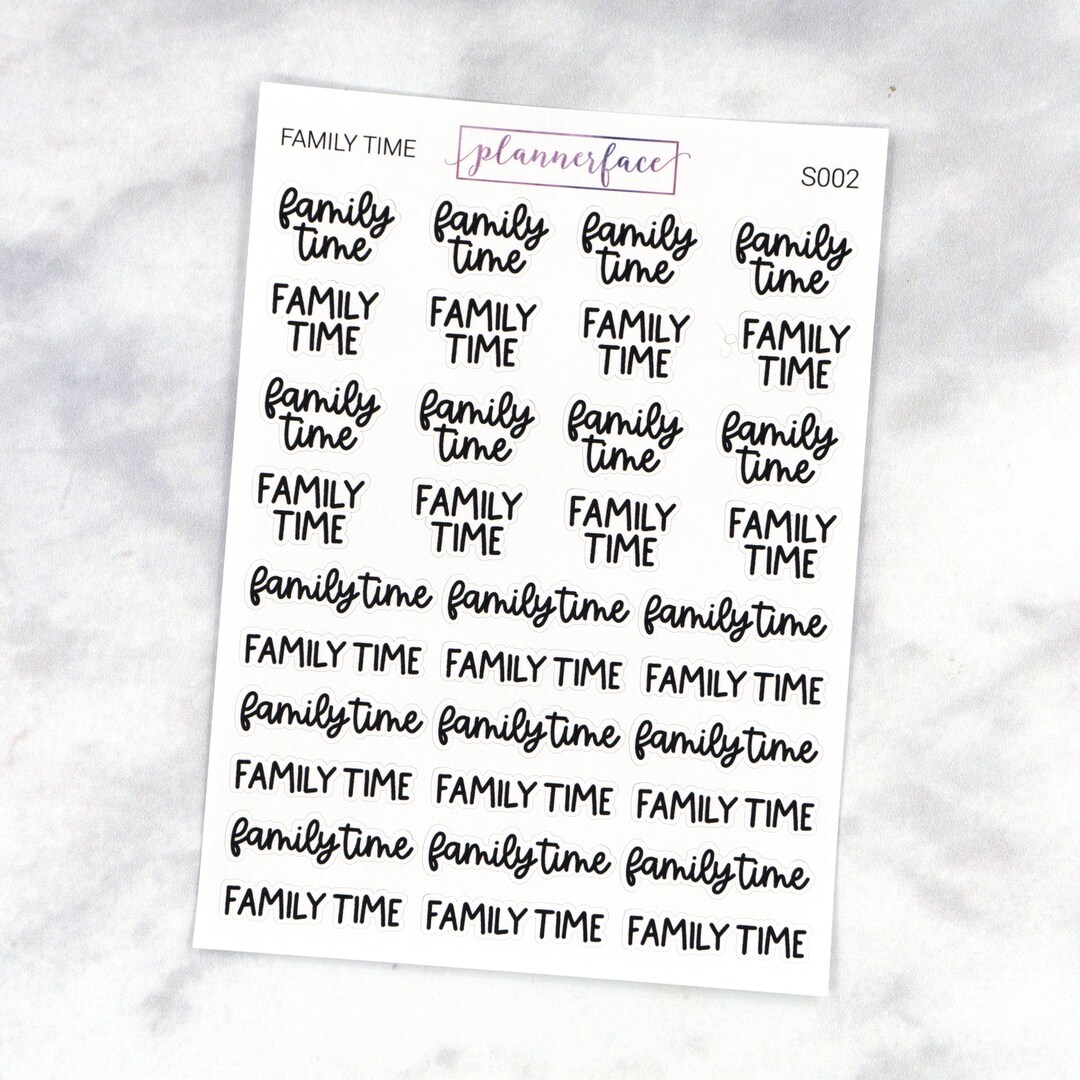 FAMILY TIME plannerface S002
family family family family
time time time time
FAMILY FAMILY FAMILY FAMILY
TIME TIME TIME TIME
family family family family
time time time time
FAMILY FAMILY FAMILY FAMILY
TIME TIME TIME TIME
family time family time family time
FAMILY TIME FAMILY TIME FAMILY TIME
family time family time family time
FAMILY TIME FAMILY TIME FAMILY TIME
family time family time family time
FAMILY TIME FAMILY TIME FAMILY TIME